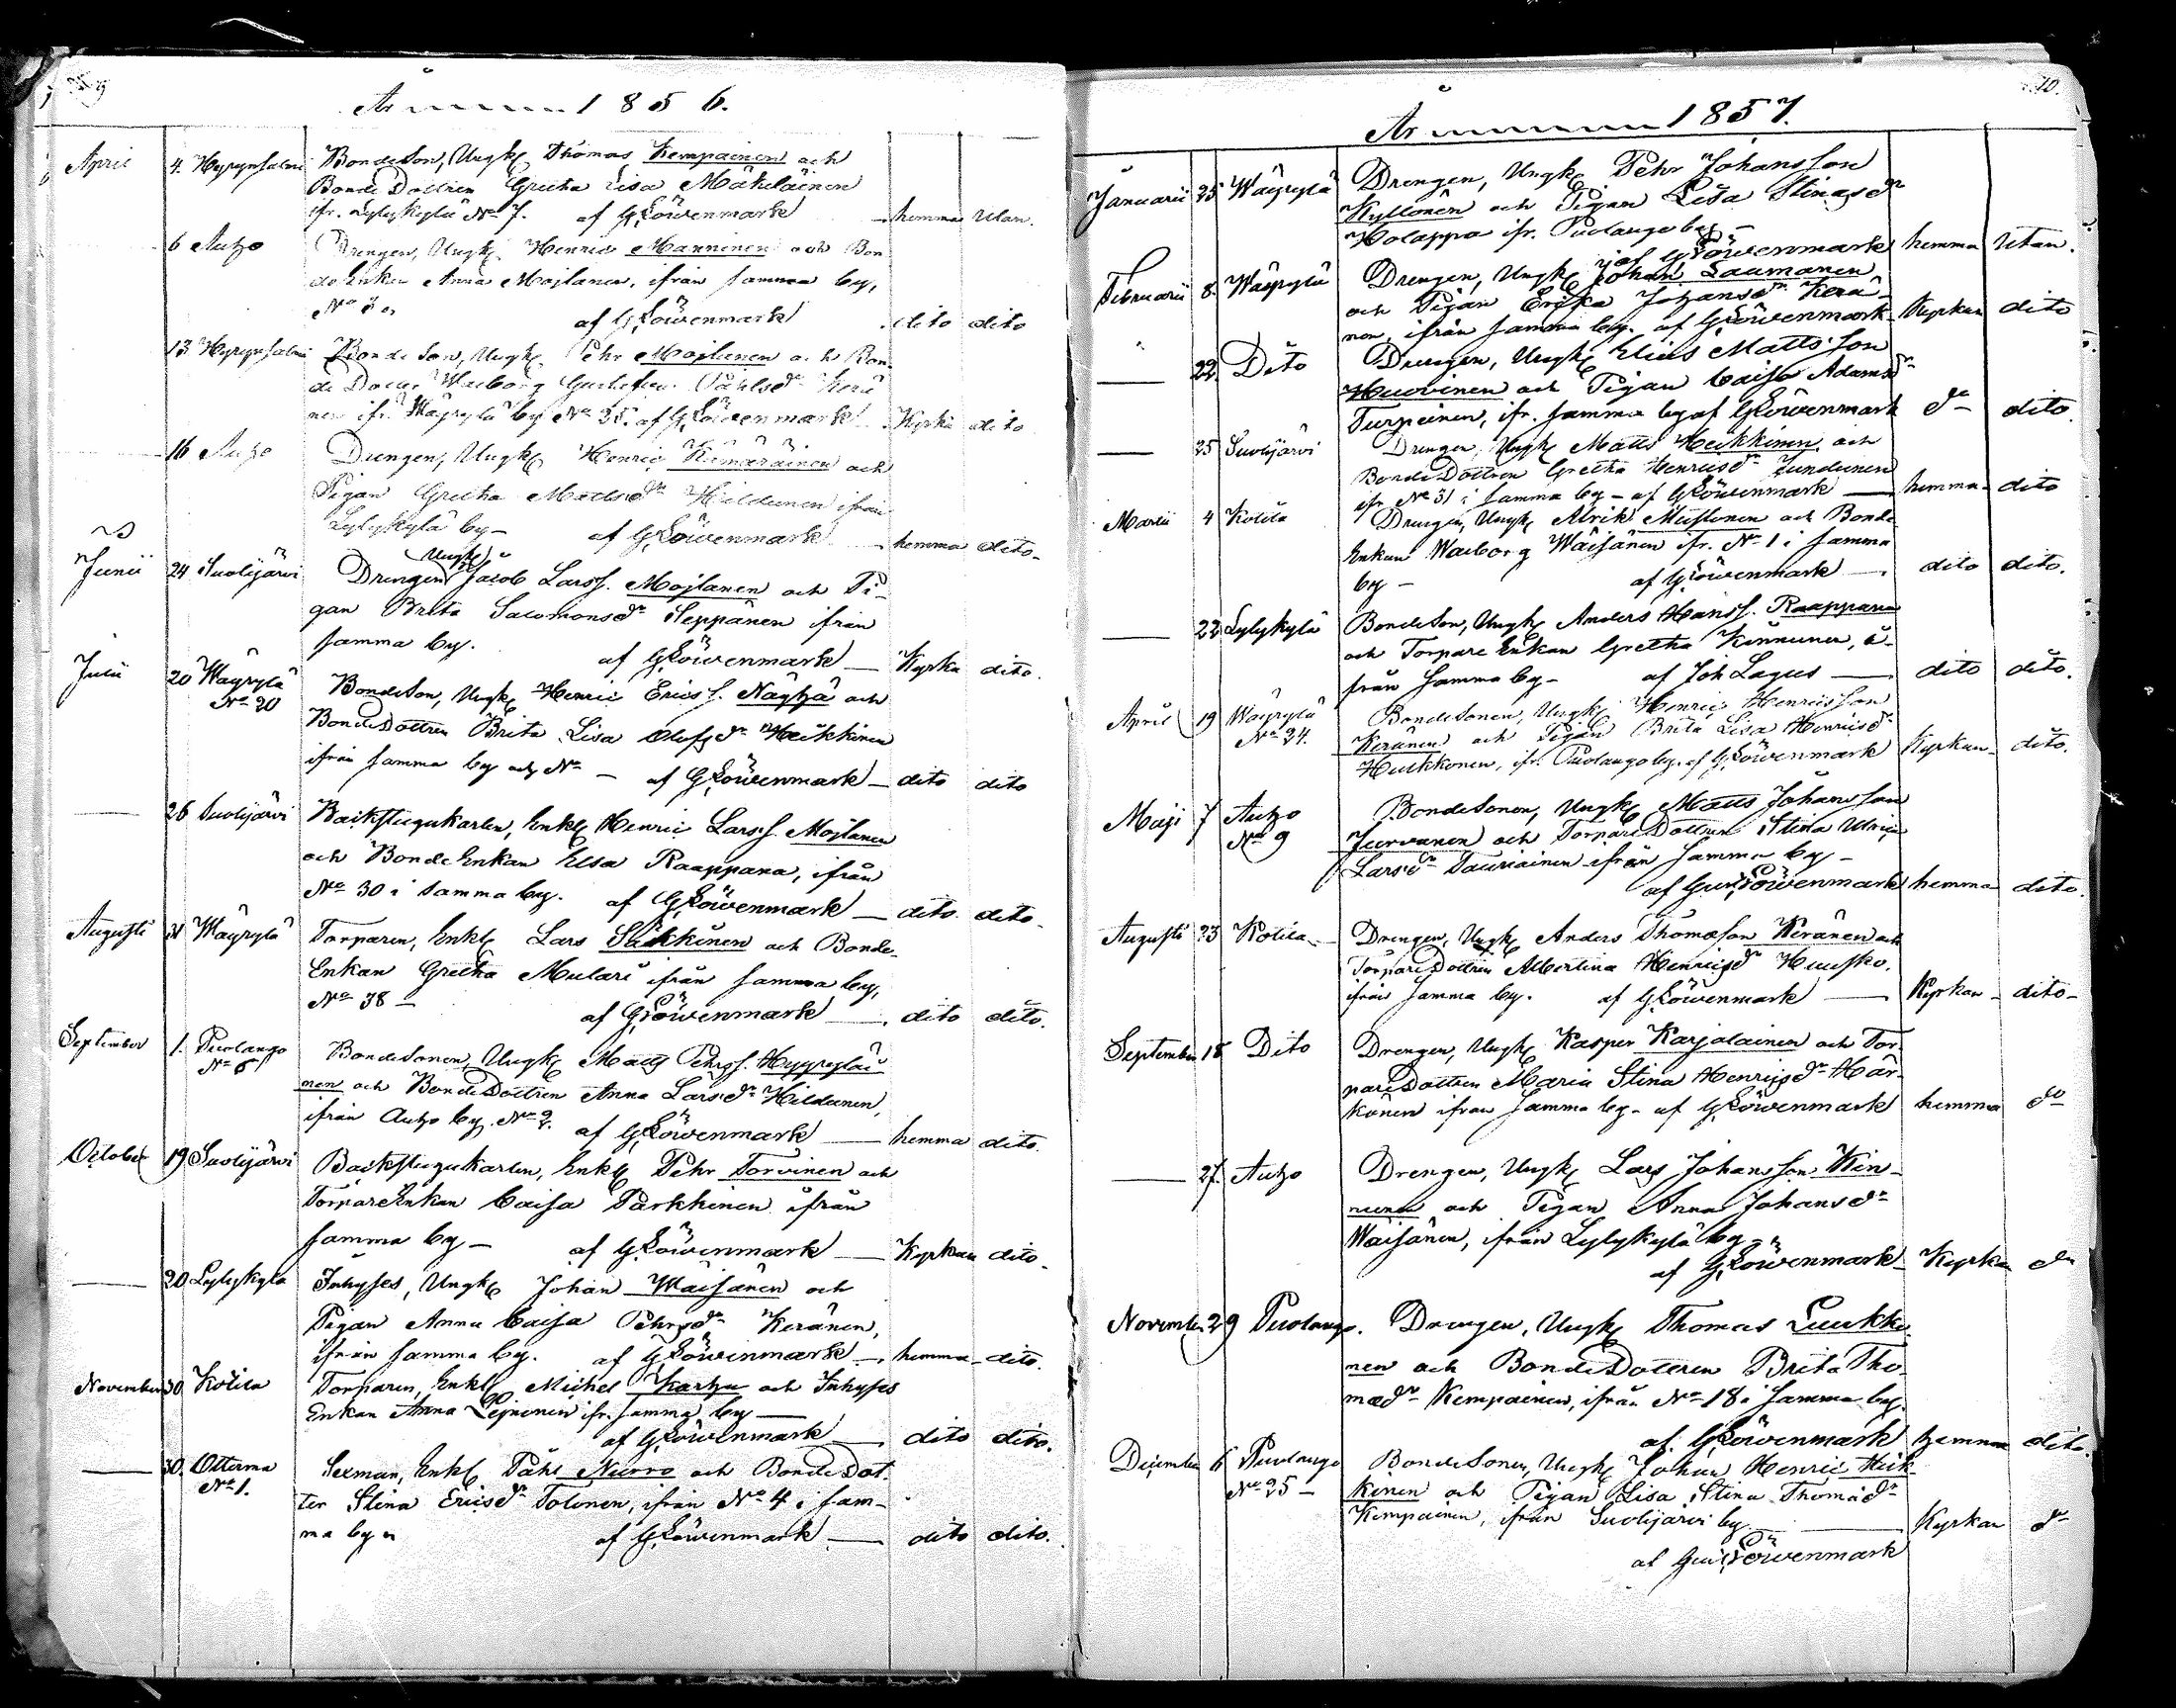 9
År 1856.
April 4. Hyrynsalmi BondeSon, Ungk Thomas Kempainen och
Bonde Dottren Gretha Lisa Mäkeläinen
ifr. Lylykylä No 7. af G Löwenmark — hemma utan.
6 Autzo Drengen, Ungk Henric Manninen och Bon-
de Enkan Anna Mojlanen, ifrån samma by,
No
af G Löwenmark dito dito
13 Hyrynsalmi Bonde Son, Ungk Pehr Mojlanen och Bon-
de Dotter Warborg Gustafva Påhlsdr Kerä
nen ifr. Wäyrylä by No 35. af G Löwenmark Kyrka dito
16 Autzo Drengen, Ungk Henric Kämäräinen och
Pigan Gretha Matsdr Hildunen ifrån
Lylykylä by — af G Löwenmark hemma dito
Junii 24 Suolijärvi Drengen Ungk Jacob Larss. Mojlanen och Pi-
gan Brita Salomonsdr Seppänen ifrån
samma by. af G Löwenmark — Kyrka dito.
Julii 20 Wäyrylä No 20 BondeSon, Ungk Henric Erics S. Näyhä och
BondeDottren Brita Lisa Olofsdr Heikkinen
ifrån samma by och No — af G Löwenmark — dito dito
— 26 Suolijärvi Backstugukarlen, Enkl Henric Larss. Mojlanen
och Bonde Enkan Elsa Raappana, ifrån
No 30 i samma by. af G Löwenmark — dito. dito.
Augusti 31 Wäyrylä Torparen, Enkl Lars Säkkinen och Bonde-
Enkan Gretha Mulari ifrån samma by,
No 38 — af G Löwenmark — dito dito.
September 1. Puolango No 6 BondeSonen, Ungk Matts Pehrss. Hyyryläi
nen och BondeDottren Anna Larsdr Hildunen,
ifrån Autzo by. No 2. af G Löwenmark — hemma dito.
October 19 Suolijärvi Backstugukarlen, Enkl Pehr Torvinen och
TorpareEnkan Caisa Parkkinen ifrån
samma by — af G Löwenmark — Kyrkan dito.
— 20 Lylykylä Inhyses, Ungk Johan Wäisänen och
Pigan Anna Caisa Pehrsdr Keränen,
ifrån samma by. af G Löwenmark —. hemma — dito.
November 30. Kotila Torparen, Enkl Michel Karhu och Inhyses
Enkan Anna Leinonen ifr. samma by —
af G Löwenmark — dito dito.
— 30. Otterma No 1. Sexman, Enkl Påhl Nurro och Bonde Dot-
ter Stina Ericsdr Tolonen, ifrån No 4 i sam-
ma by af G Löwenmark — dito dito.
10.
År 1857.
Januarii 25 Wäyrylä Drengen, Ungk Pehr Johansson
Kyllönen och Pigan Lisa Stina
Holappa ifr. Puolango by —
af G Löwenmark hemma utan.
Februarii 8. Wäyrylä Drengen, Ungk Johan Laumanen
och Pigan Erica Johansdr Kerä-
nen, ifrån samma by. af G Löwenmark Kyrkan dito
— 22. Dito Drengen, Ungk Elias Matts son
Huovinen och Pigan Caisa Adamsdr
Turpeinen, ifr. samma by af G Löwenmark do dito.
— 25 Suolijärvi Drengen, Ungk Matts Heikkinen och
BondeDottren Gretha Henricsdr Lundunen
ifr No 31 i samma by — af G Löwenmark — hemma dito
Martii 4 Kotila Drengen, Ungk Alrik Mustonen och Bonde
Enkan Warborg Wäisänen ifr. No 1 i samma
by — af G Löwenmark —. dito dito.
— 22. Lylykylä BondeSon, Ungk Anders Hanss. Raappana
och Torpare Enkan Gretha Kinnunen, i-
från samma by — af Joh Lagus — dito dito.
April 19 Wäyrylä No 24. BondeSonen, Ungk Henric Henricsson
Keränen och Pigan Brita Lisa Henricsdr
Huikkonen, ifr. Puolango by. af G Löwenmark Kyrkan dito.
Maji 7 Autzo No 9 BondeSonen, Ungk Matts Johansson
Jurvanen och TorpareDottren Stina Ulrica
Larsdr Tauriainen ifrån samma by —
af Gust Löwenmark hemma dito.
Augusti 23 Kotila — Drengen, Ungk Anders Thomasson Keränen och
TorpareDottren Albertina Henricsdr Huusko.
ifrån samma by. af G Löwenmark — Kyrkan — dito —
September 18 Dito Drengen, Ungk Kasper Karjalainen och Tor-
pareDottren Maria Stina Henricsdr Här-
könen ifrån samma by — af G Löwenmark hemma do
— 27. Autzo Drengen, Ungk Lars Johansson Kin-
nunen och Pigan Anna Johansdr
Wäisänen, ifrån Lylykylä by —
af G Löwenmark — Kyrka do
November 29 Puolango. Drengen, Ungk Thomas Luukko
nen och BondeDottren Brita Tho-
madr Kempainen, ifrån No 18 i samma by.
af G Löwenmark hemma dito.
December 6 Puolango No 25 — BondeSonen, Ungk Johan Henric Heik-
kinen och Pigan Lisa Stina Thomadr
Kempainen, ifrån Suolijärvi by — Kyrkan do
af Gust Löwenmark